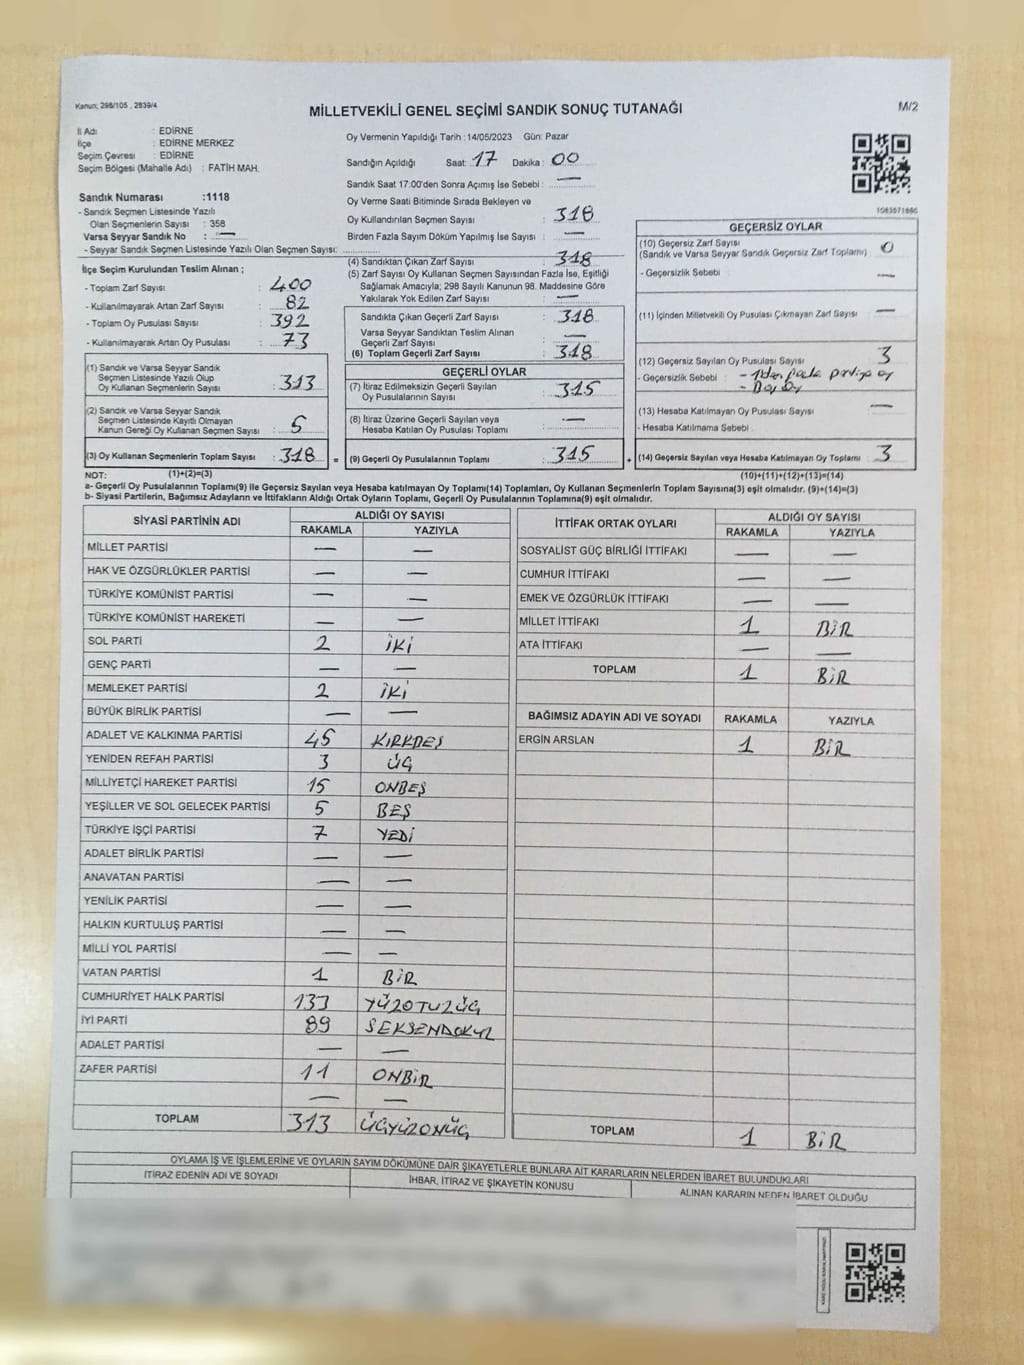 Kanun; 298/105 , 2839/4
MİLLETVEKİLİ GENEL SEÇİMİ SANDIK SONUÇ TUTANAĞI
M/2
İl Adı : EDİRNE
İlçe : EDİRNE MERKEZ
Seçim Çevresi : EDİRNE
Seçim Bölgesi (Mahalle Adı) : FATİH MAH.
Sandık Numarası :1118
- Sandık Seçmen Listesinde Yazılı
Olan Seçmenlerin Sayısı : 358
Varsa Seyyar Sandık No : —
- Seyyar Sandık Seçmen Listesinde Yazılı Olan Seçmen Sayısı:
İlçe Seçim Kurulundan Teslim Alınan ;
- Toplam Zarf Sayısı : 400
- Kullanılmayarak Artan Zarf Sayısı : 82
- Toplam Oy Pusulası Sayısı : 392
- Kullanılmayarak Artan Oy Pusulası : 73
(1) Sandık ve Varsa Seyyar Sandık
Seçmen Listesinde Yazılı Olup
Oy Kullanan Seçmenlerin Sayısı : 313
(2) Sandık ve Varsa Seyyar Sandık
Seçmen Listesinde Kayıtlı Olmayan
Kanun Gereği Oy Kullanan Seçmen Sayısı : 5
(3) Oy Kullanan Seçmenlerin Toplam Sayısı : 318 =
Oy Vermenin Yapıldığı Tarih : 14/05/2023 Gün: Pazar
Sandığın Açıldığı Saat: 17 Dakika : 00
Sandık Saat 17:00'den Sonra Açımış İse Sebebi : —
Oy Verme Saati Bitiminde Sırada Bekleyen ve
Oy Kullandırılan Seçmen Sayısı : 318
Birden Fazla Sayım Döküm Yapılmış İse Sayısı : —
(4) Sandıktan Çıkan Zarf Sayısı : 318
(5) Zarf Sayısı Oy Kullanan Seçmen Sayısından Fazla İse, Eşitliği
Sağlamak Amacıyla; 298 Sayılı Kanunun 98. Maddesine Göre
Yakılarak Yok Edilen Zarf Sayısı : —
Sandıkta Çıkan Geçerli Zarf Sayısı : 318
Varsa Seyyar Sandıktan Teslim Alınan
Geçerli Zarf Sayısı : —
(6) Toplam Geçerli Zarf Sayısı : 318
GEÇERLİ OYLAR
(7) İtiraz Edilmeksizin Geçerli Sayılan
Oy Pusulalarının Sayısı : 315
(8) İtiraz Üzerine Geçerli Sayılan veya
Hesaba Katılan Oy Pusulası Toplamı : —
(9) Geçerli Oy Pusulalarının Toplamı : 315 +
1083571686
GEÇERSİZ OYLAR
(10) Geçersiz Zarf Sayısı
(Sandık ve Varsa Seyyar Sandık Geçersiz Zarf Toplamı) : 0
- Geçersizlik Sebebi : —
(11) İçinden Milletvekili Oy Pusulası Çıkmayan Zarf Sayısı : —
(12) Geçersiz Sayılan Oy Pusulası Sayısı : 3
- Geçersizlik Sebebi : - 1den fazla partiye oy
- Boş Oy
(13) Hesaba Katılmayan Oy Pusulası Sayısı : —
- Hesaba Katılmama Sebebi :
(14) Geçersiz Sayılan veya Hesaba Katılmayan Oy Toplamı : 3
NOT: (1)+(2)=(3) (10)+(11)+(12)+(13)=(14)
a- Geçerli Oy Pusulalarının Toplamı(9) ile Geçersiz Sayılan veya Hesaba katılmayan Oy Toplamı(14) Toplamları, Oy Kullanan Seçmenlerin Toplam Sayısına(3) eşit olmalıdır. (9)+(14)=(3)
b- Siyasi Partilerin, Bağımsız Adayların ve İttifakların Aldığı Ortak Oyların Toplamı, Geçerli Oy Pusulalarının Toplamına(9) eşit olmalıdır.
SİYASİ PARTİNİN ADI ALDIĞI OY SAYISI
RAKAMLA YAZIYLA
MİLLET PARTİSİ — —
HAK VE ÖZGÜRLÜKLER PARTİSİ — —
TÜRKİYE KOMÜNİST PARTİSİ — —
TÜRKİYE KOMÜNİST HAREKETİ — —
SOL PARTİ 2 İKİ
GENÇ PARTİ — —
MEMLEKET PARTİSİ 2 İKİ
BÜYÜK BİRLİK PARTİSİ — —
ADALET VE KALKINMA PARTİSİ 45 KIRKBEŞ
YENİDEN REFAH PARTİSİ 3 ÜÇ
MİLLİYETÇİ HAREKET PARTİSİ 15 ONBEŞ
YEŞİLLER VE SOL GELECEK PARTİSİ 5 BEŞ
TÜRKİYE İŞÇİ PARTİSİ 7 YEDİ
ADALET BİRLİK PARTİSİ — —
ANAVATAN PARTİSİ — —
YENİLİK PARTİSİ — —
HALKIN KURTULUŞ PARTİSİ — —
MİLLİ YOL PARTİSİ — —
VATAN PARTİSİ 1 BİR
CUMHURİYET HALK PARTİSİ 133 YÜZOTUZÜÇ
İYİ PARTİ 89 SEKSENDOKUZ
ADALET PARTİSİ — —
ZAFER PARTİSİ 11 ONBİR
— —
TOPLAM 313 ÜÇYÜZONÜÇ
İTTİFAK ORTAK OYLARI ALDIĞI OY SAYISI
RAKAMLA YAZIYLA
SOSYALİST GÜÇ BİRLİĞİ İTTİFAKI — —
CUMHUR İTTİFAKI — —
EMEK VE ÖZGÜRLÜK İTTİFAKI — —
MİLLET İTTİFAKI 1 BİR
ATA İTTİFAKI — —
TOPLAM 1 BİR
BAĞIMSIZ ADAYIN ADI VE SOYADI RAKAMLA YAZIYLA
ERGİN ARSLAN 1 BİR
TOPLAM 1 BİR
OYLAMA İŞ VE İŞLEMLERİNE VE OYLARIN SAYIM DÖKÜMÜNE DAİR ŞİKAYETLERLE BUNLARA AİT KARARLARIN NELERDEN İBARET BULUNDUKLARI
İTİRAZ EDENİN ADI VE SOYADI İHBAR, İTİRAZ VE ŞİKAYETİN KONUSU ALINAN KARARIN NEDEN İBARET OLDUĞU